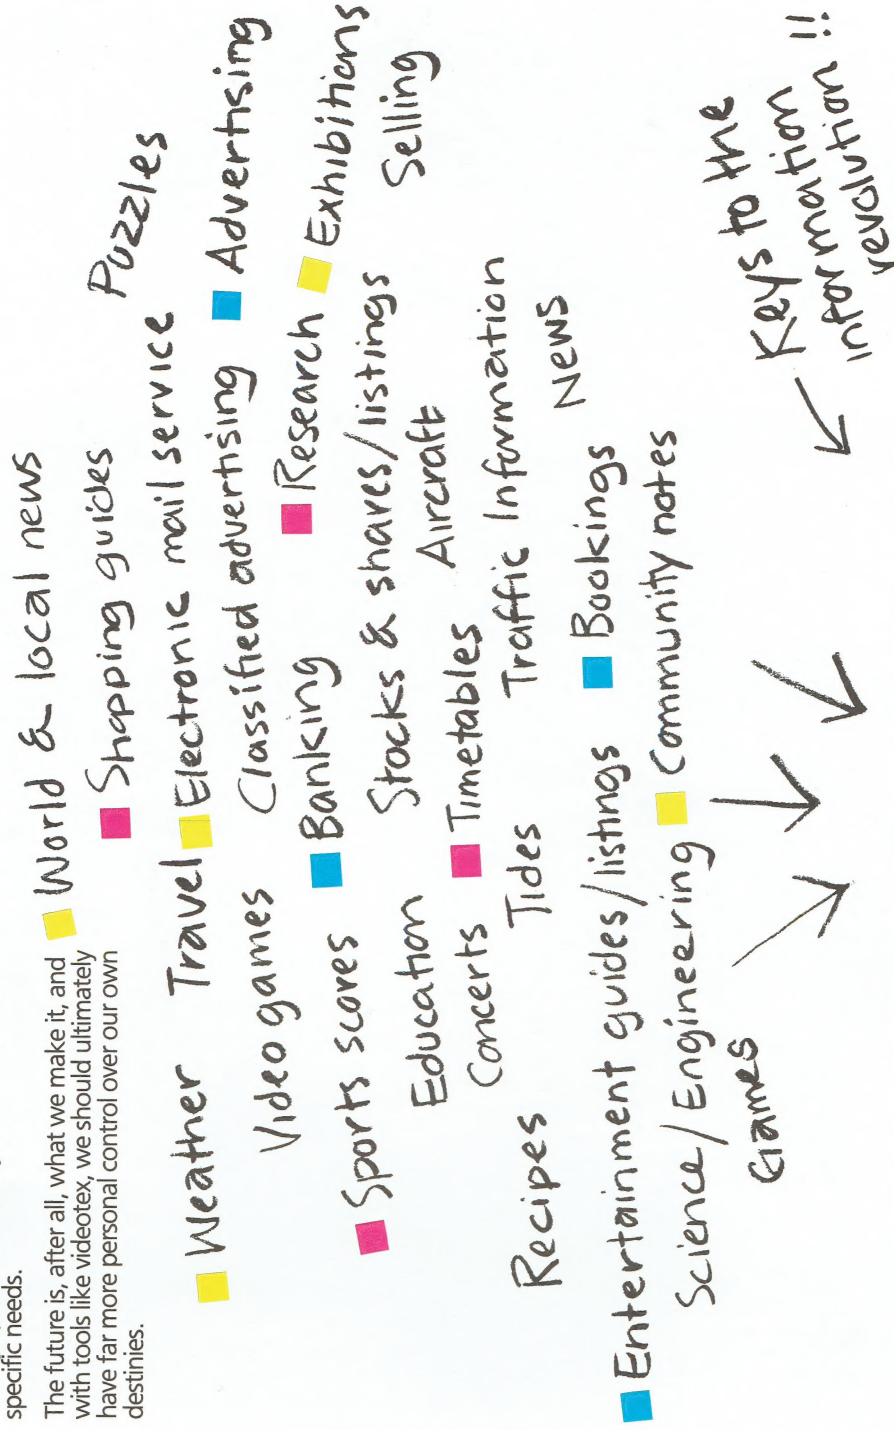 specific needs.
The future is, after all, what we make it, and
with tools like videotex, we should ultimately
have far more personal control over our own
destinies.
World & local news
Shopping guides
Puzzles
Weather Travel Electronic mail service
Video games Classified advertising Advertising
Sports scores Banking Research Exhibitions
Education Stocks & shares/listings Selling
Concerts Timetables Aircraft
Recipes Tides Traffic Information
News
Entertainment guides/listings Bookings
Science/Engineering Community notes
Games
Keys to the
information
revolution !!